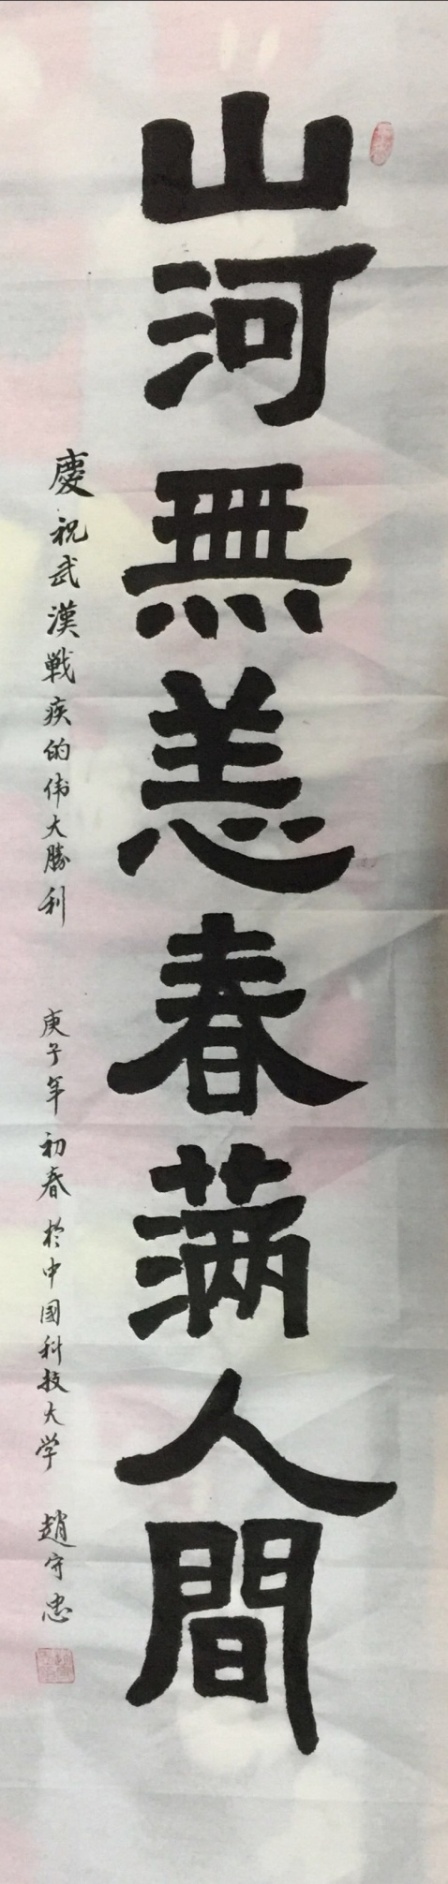 山河無恙春满人間
慶祝武漢戦疾的伟大勝利 庚子年初春於中国科技大学 趙守忠